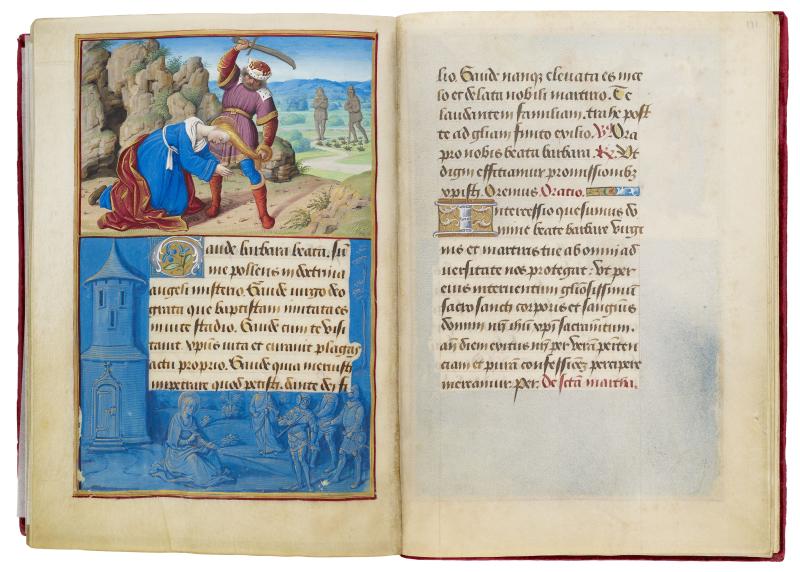 Gaude barbara beata. Sum
me pollens in doctrina
angeli misterio. Gaude virgo deo
grata que baptistam imitata es
in vite stadio. Gaude cum te visi
tavit xpistus vita et curavit plagas
actu proprio. Gaude quia meruisti
impetrare quod petisti dante dei fi
lio. Gaude nanque elevata es in ce
lo et delata nobili martirio. Te
laudantem familiam. trahe post
te ad gliam finito exilio. V. Ora
pro nobis beata barbara. R. Ut
digni efficiamur promissionibz
xpisti. Oremus Oratio.
Intercessio quesumus do
mine beate barbare virgi
nis et martiris tue ab omni ad
versitate nos protegat: Ut per
eius interventum gliosissimum
sacrosancti corporis et sanguis
domini nri ihu xpi sacramentum.
ante diem exitus nri per veram peniten
ciam et puram confessionem percipere
mereamur. Per: De scta martha.